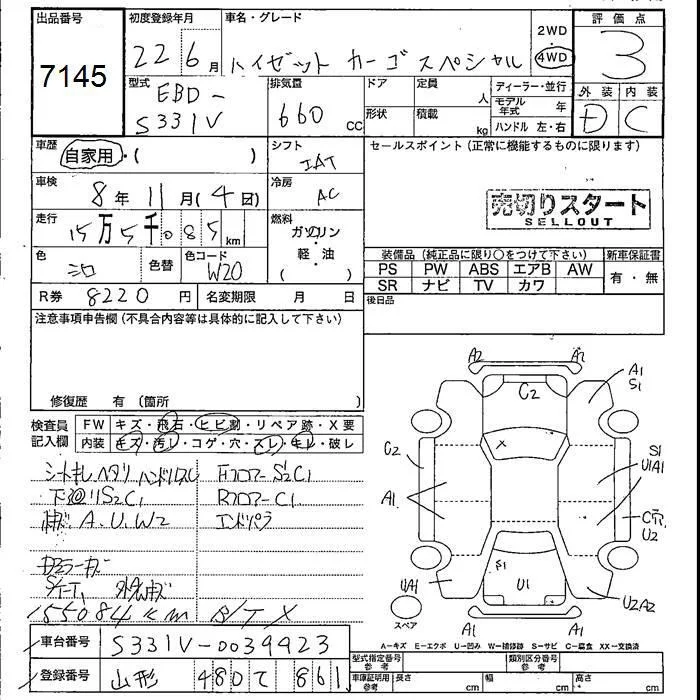 出品番号 初度登録年月 車名・グレード 評価点
7145 22年 6月 ハイゼット カーゴ スペシャル 2WD 4WD 3
型式 EBD-S331V 排気量 660cc ドア 定員 人 ディーラー・並行 外装 内装
形状 積載 kg モデル年式 年 ハンドル 左・右 D C
車歴 自家用・( ) シフト IAT セールスポイント(正常に機能するものに限ります)
車検 8年 11月(4回) 冷房 AC 売切りスタート
SELLOUT
走行 15万5千085km 燃料 ガソリン・軽・油( )
色 シロ 色替 色コード W20
装備品(純正品に限り○をつけて下さい) 新車保証書
PS PW ABS エアB AW 有・無
SR ナビ TV カワ
R券 8220円 名変期限 月 日 後日品
注意事項申告欄(不具合内容等は具体的に記入して下さい)
修復歴 有(箇所 )
検査員記入欄 FW キズ・飛石・ヒビ割・リペア跡・X要
内装 キズ・汚れ・コゲ・穴・スレ・キレ・破レ
シートキレ ヘタリ ハンドルスレ Fフロアー S2C1
下廻り S2C1 Rフロアー C1
A.U.W2
155084km
車台番号 S331V-0039923
登録番号 山形 480 て 861
A2 A2
C2
A1
S1
X
C2
A1
S1
U1A1
C穴
U2
S1
U1
U1A1
U2A2
A1 A1
スペア
A=キズ E=エクボ U=凹み W=補修跡 S=サビ C=腐食 XX=交換済
型式指定番号 参考 類別区分番号 参考
車庫証明用 参考 長さ cm 幅 cm 高さ cm